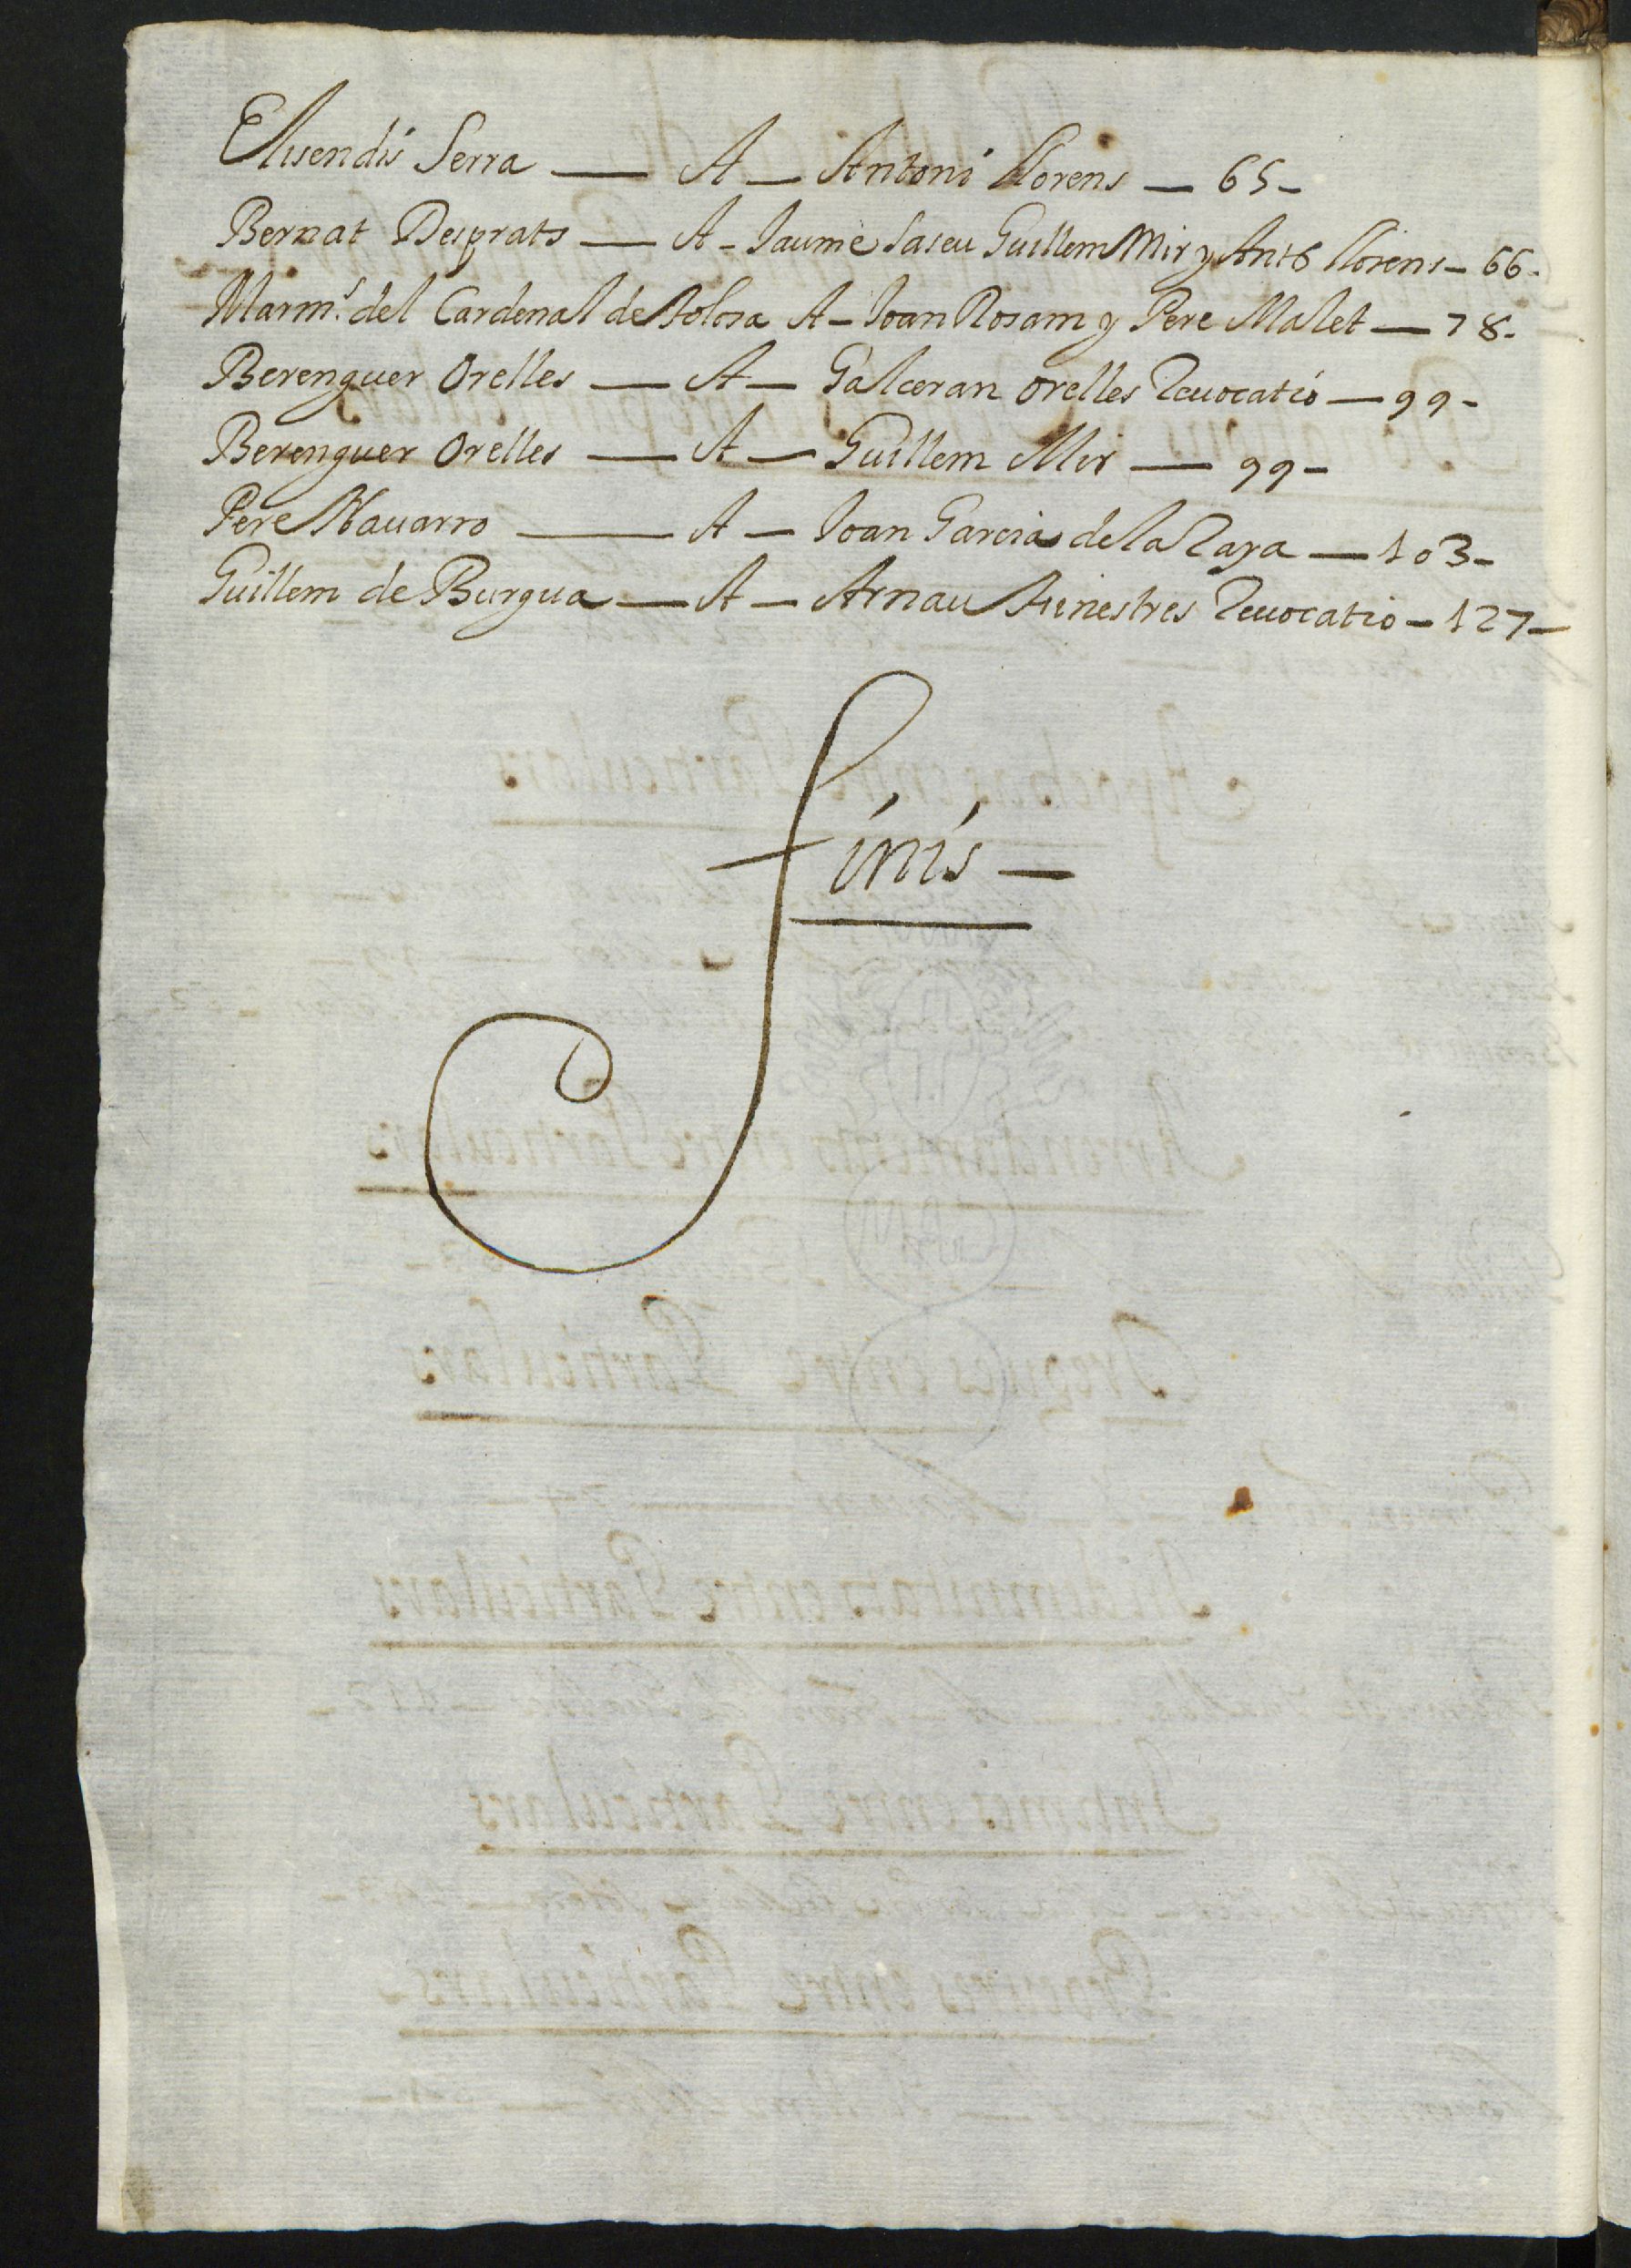 Elisendis Serra — A — Antoni Llorens — 65 -
Bernat Desprats — A - Jaume Saseu Guillem Mir y Anto Llorens - 66 -
Marm.^s del Cardenal de Tolosa A - Joan Rosam y Pere Malet — 78 -
Berenguer Orelles — A — Galceran Orelles Revocatio — 99 -
Berenguer Orelles — A — Guillem Mir — 99 -
Pere Navarro — A — Joan Garcia de la Raya — 103 -
Guillem de Burgua — A — Arnau Finestres Revocatio - 127 -
Finis —